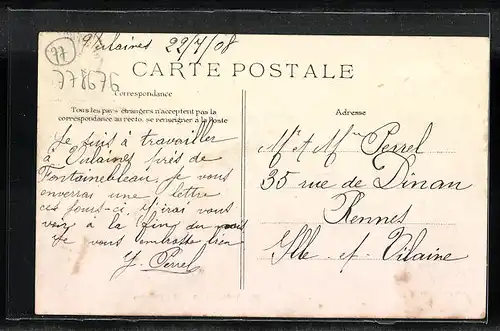 Vulaines 22/7/08
77
778676
CARTE POSTALE
Correspondance
Tous les pays étrangers n'acceptent pas la
correspondance au recto, se renseigner à la Poste
Je suis à travailler
à Vulaines près de
Fontainebleau, je vous
enverrai une lettre
ces jours-ci, j'irai vous
voir à la fin du mois
Je vous embrasse bien
J. Perrel
Adresse
Mr et Mme Perrel
35 rue de Dinan
Rennes
Ille-et-Vilaine